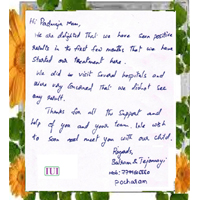 Hi Padmaja Mam,
We are delighted that we have seen positive
results in the first few months that we have
started our treatment here.
We did so visit several hospitals and
were very concerned that we didnot see
any result.
Thanks for all the support and
help of you and your team. We wish
to soon meet you with our child.
Regards,
&
Pocharam
IUI